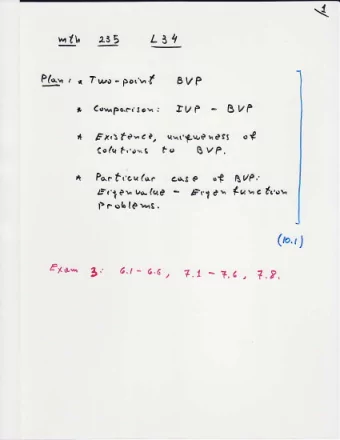 1
mth 235 L34
Plan: * Two-point BVP
* Comparison: IVP - BVP
* Existence, uniqueness of
solutions to BVP.
* Particular case of BVP:
Eigenvalue - Eigenfunction
Problems.
(10.1)
Exam 3: 6.1 - 6.6, 7.1 - 7.6, 7.8.